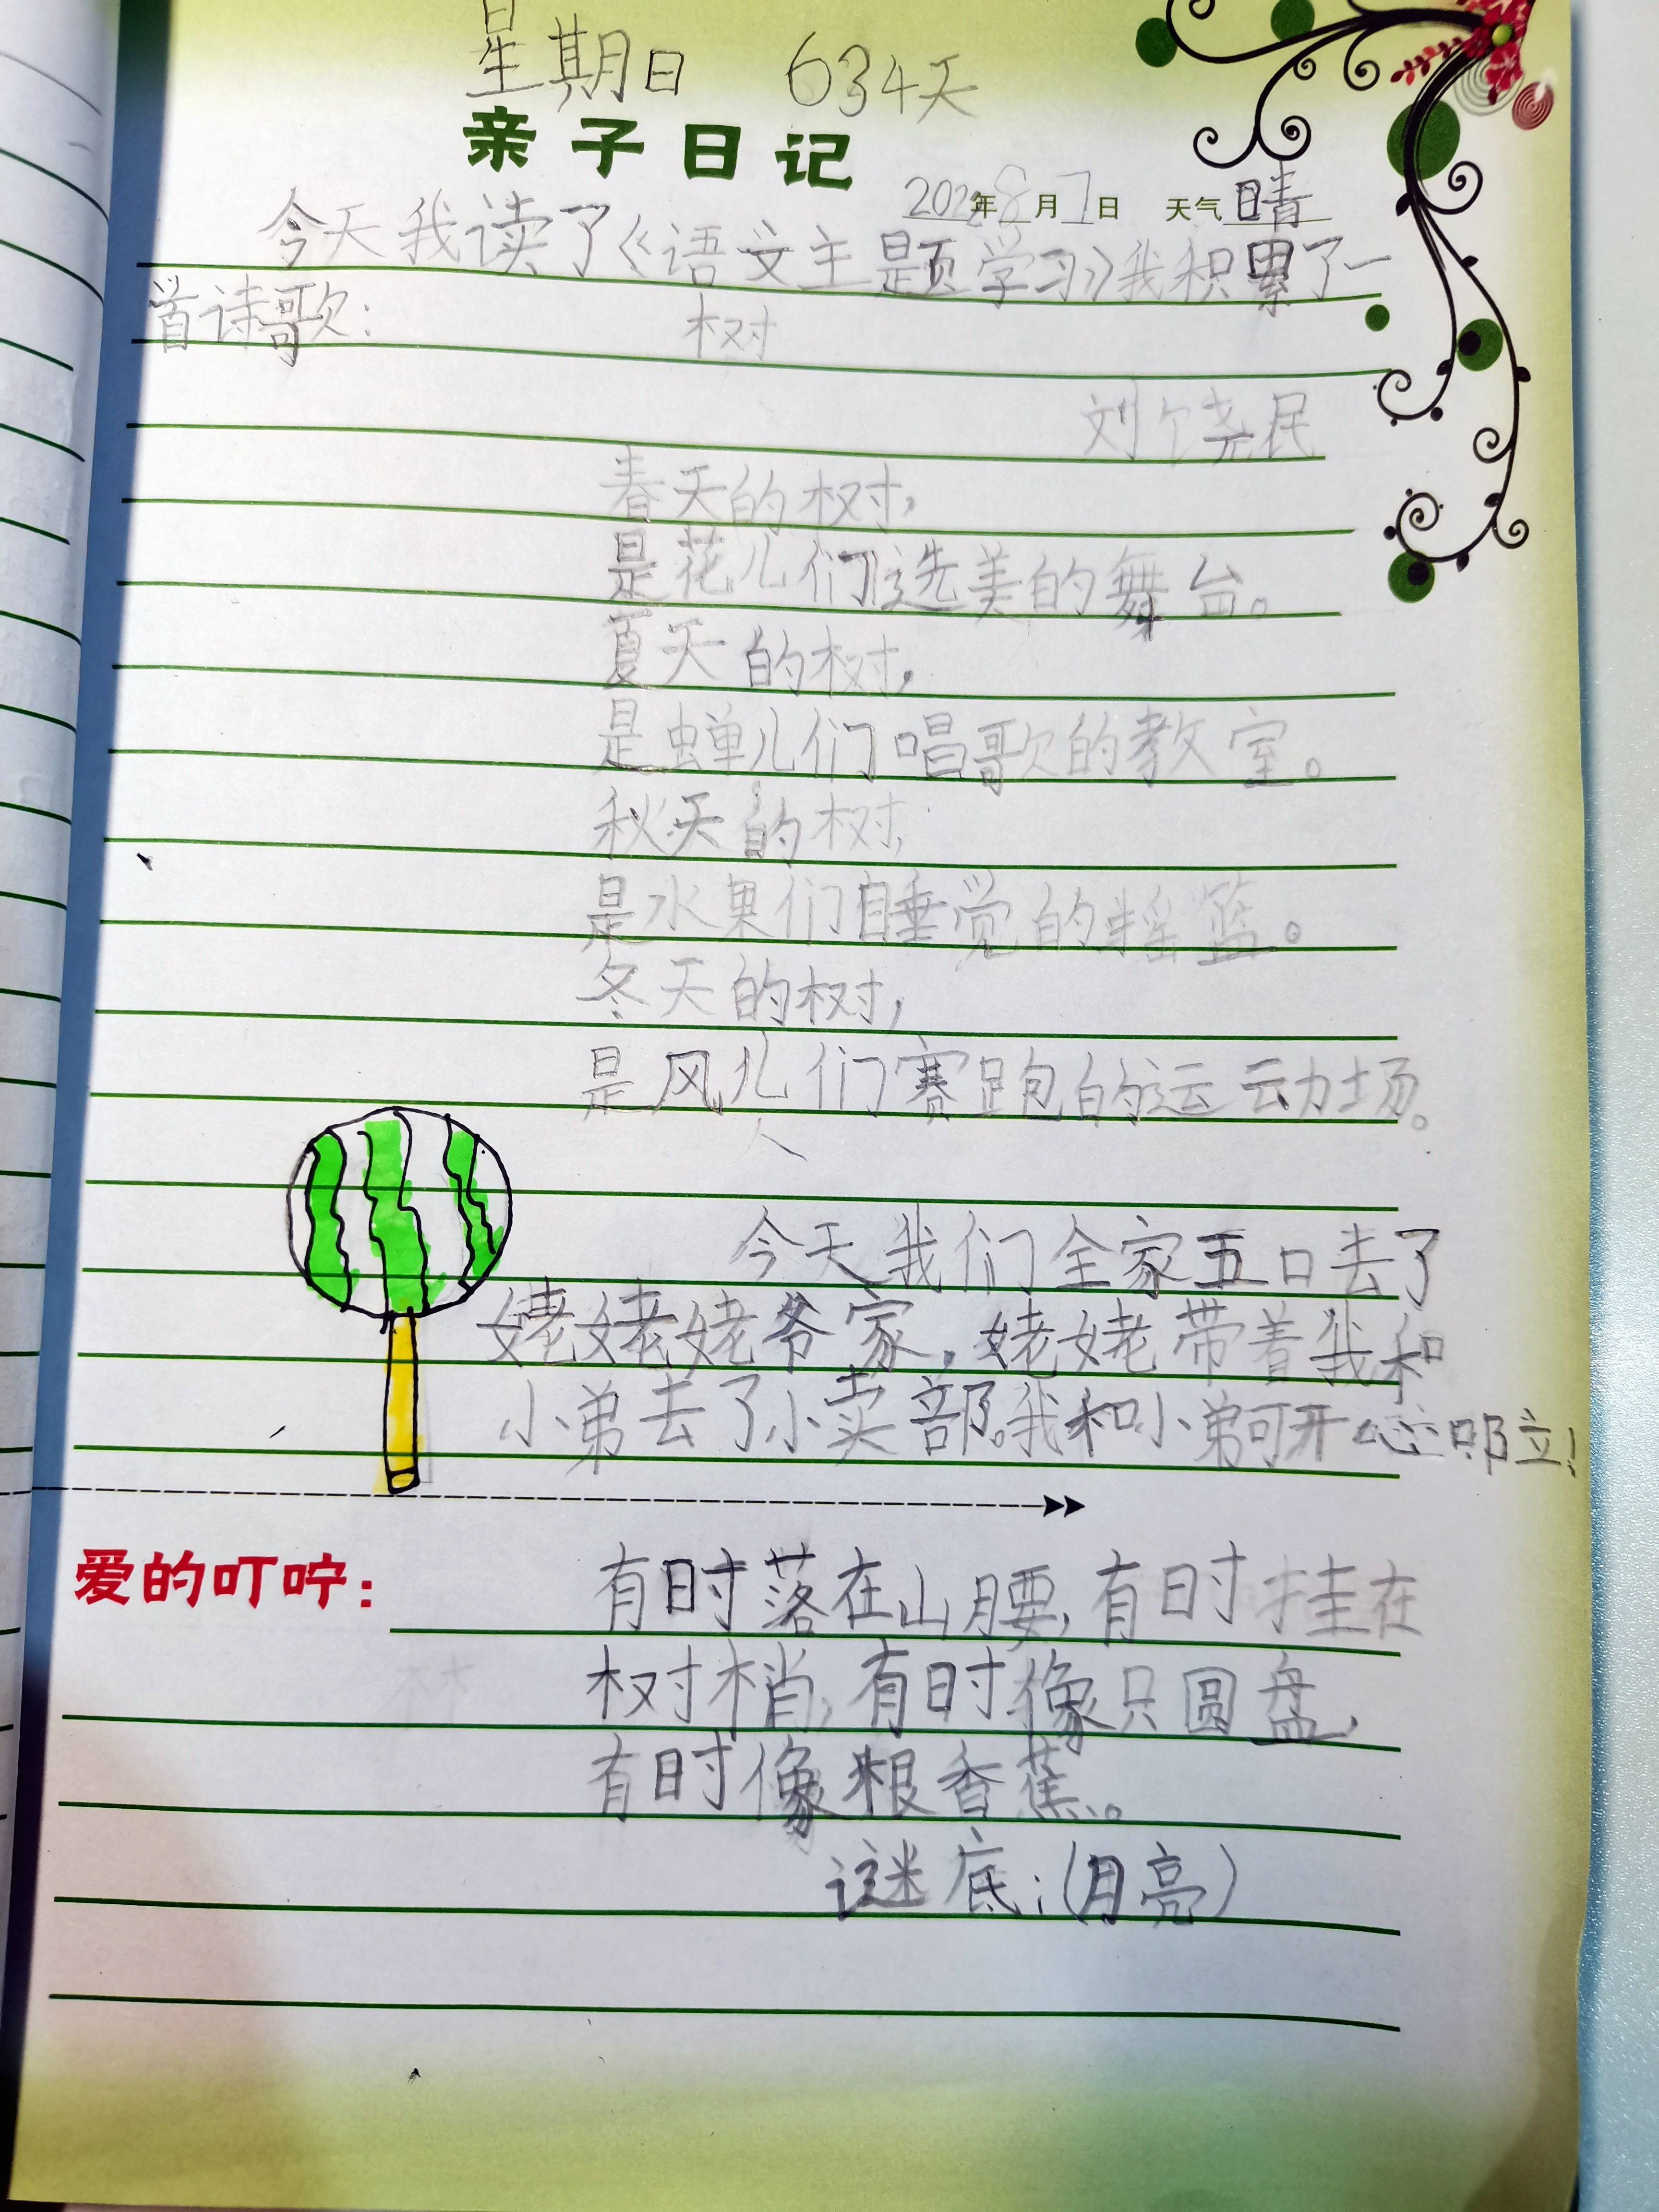 星期日 634天
亲子日记
2022年8月7日 天气晴
今天我读了《语文主题学习》我积累了一
首诗歌: 树
刘饶民
春天的树,
是花儿们选美的舞台。
夏天的树,
是蝉儿们唱歌的教室。
秋天的树,
是水果们睡觉的摇篮。
冬天的树,
是风儿们赛跑的运动场。
今天我们全家五口去了
姥姥姥爷家,姥姥带着我和
小弟去了小卖部。我和小弟可开心啦!
爱的叮咛:
有时落在山腰,有时挂在
树梢,有时像只圆盘,
有时像根香蕉。
谜底:(月亮)